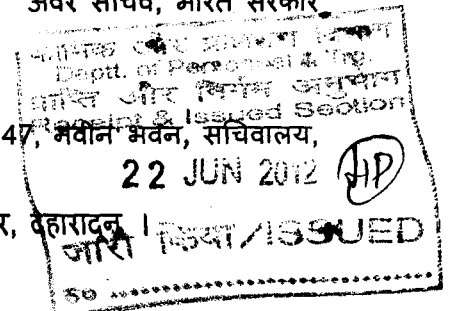 अवर सचिव, भारत सरकार
कार्मिक और प्रशिक्षण विभाग
Deptt. of Personnel & Trg.
प्राप्ति और निर्गम अनुभाग
Receipt & Issued Section
47, नवीन भवन, सचिवालय,
22 JUN 2012 HP
र, देहारादून ।
जारी किया/ISSUED
so